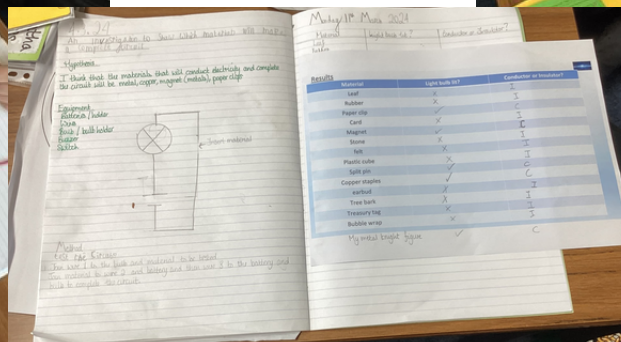 An investigation to show which materials will make
a complete circuit.
Hypothesis
I think that the materials that will conduct electricity and complete
the circuit will be metal, copper, magnet (metals), paper clips
Equipment
Batteries / holder
Wires
Bulb / bulb holder
Switch
Insert material
Method
wire 1 to the bulb and material to be tested
material to wire 2 and battery and then wire 3 to the battery and
bulb to complete the circuit.
Monday 11th March 2024
Material Light bulb lit? Conductor or Insulator?
Leaf
Rubber
Results
Material Light bulb lit? Conductor or Insulator?
Leaf I
Rubber X I
Paper clip ✓ C
Card X I
Magnet ✓
Stone X I
felt X I
Plastic cube X I
Split pin ✓ C
Copper staples ✓ C
earbud X I
Tree bark X I
Treasury tag X I
Bubble wrap X I
My metal knight figure ✓ C